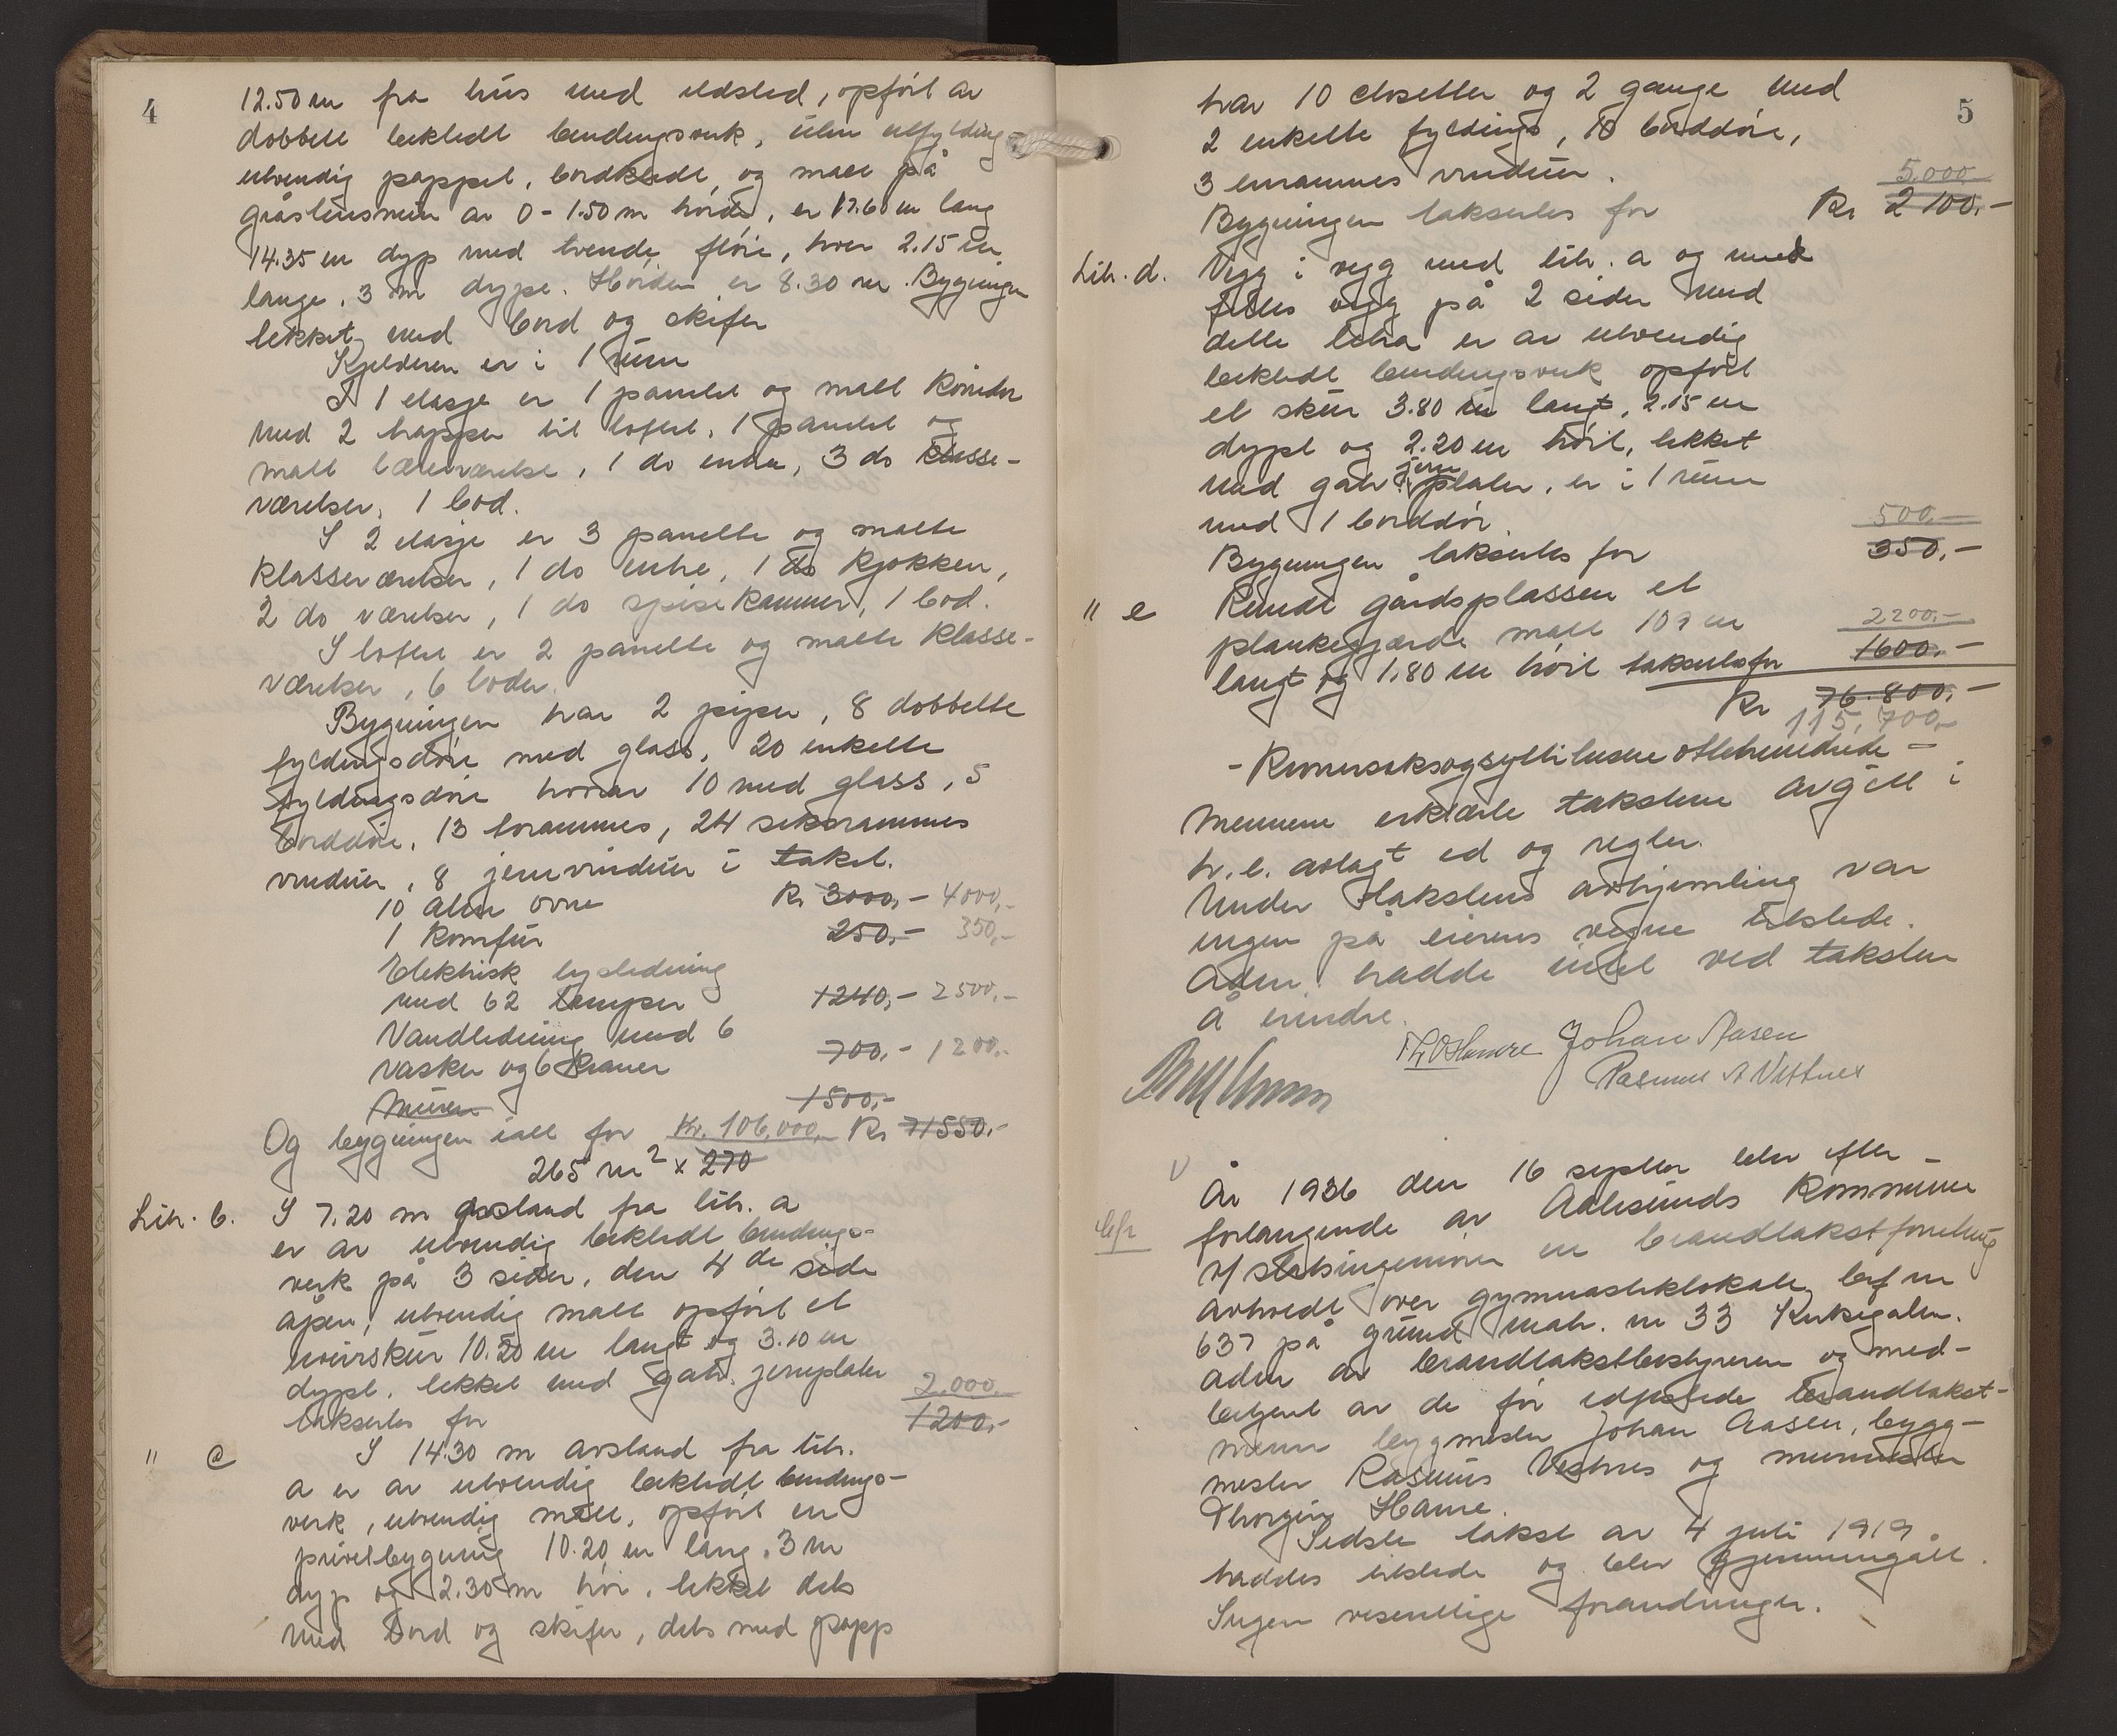 4
12.50 m fra hus med ildsted, opført av
dobbelt beklædt bindingsverk, uten utfylding
utvendig pappet, bordklædt, og malt på
gråstensmur av 0-1.50 m høide, er 17.60 m lang
14.35 m dyp med tvende fløie, hver 2.15 m
lange, 3 m dype. Høiden er 8.30 m. Bygningen
tekket med bord og skifer
Kjelderen er i 1 rum
I 1 etasje er 1 panelt og malt korridor
med 2 trapper til loftet, 1 panelt og
malt læreværelse, 1 do entre, 3 do klasse-
værelser, 1 bod.
I 2 etasje er 3 panelte og malte
klasseværelser, 1 do entre, 1 do kjøkken,
2 do værelser, 1 do spisekammer, 1 bod.
I loftet er 2 panelte og malte klasse-
værelser, 6 boder.
Bygningen har 2 piper, 8 dobbelte
fyldingsdøre med glass, 20 enkelte
fyldingsdøre hvorav 10 med glass, 5
borddøre, 13 torammes, 24 seksrammes
vinduer, 8 jernvinduer i taket.
10 alm ovne Kr 3000,- 4000,-
1 komfur 250,- 350,-
Elektrisk lysledning
med 62 lamper 1240,- 2500,-
Vandledning med 6
vasker og 6 kraner 700,- 1200,-
Muren 1500,-
Og bygningen ialt for Kr. 106.000,- Kr 71550,-
265 m² x 270
Litr. b. I 7.20 m avstand fra litr. a
er av utvendig beklædt bindings-
verk på 3 sider, den 4de side
åpen, utvendig malt opført et
uveirskur 10.20 m langt og 3.10 m
dypt, tekket med galv. jernplater
takseres for 2.000,- 1200,-
" c I 14.30 m avstand fra litr.
a er av utvendig beklædt bindings-
verk, utvendig malt, opført en
privetbygning 10.20 m lang, 3 m
dyp og 2.30 m høi, tekket dels
med bord og skifer, dels med papp
5
har 10 closetter og 2 gange med
2 enkelte fyldings, 10 borddøre,
3 enrammes vinduer.
Bygningen takseres for Kr 5.000,- 2100,-
Litr. d. Vegg i vegg med litr. a og med
felles vegg på 2 sider med
dette litra er av utvendig
beklædt bindingsverk opført
et skur 3.80 m langt, 2.15 m
dypt og 2.20 m høit, tekket
med galv jernplater, er i 1 rum
med 1 borddør.
Bygningen takseres for 500,- 350,-
" e Rundt gårdsplassen et
plankegjærde malt 109 m 2200,-
langt og 1.80 m høit takseres for 1600,-
Kr 76.800,-
115.700,-
- Kronersekssogsyttitusenottehundrede -
Mennene erklærte taksten avgitt i
h. t. avlagt ed og regler.
Under takstens avhjemling var
ingen på eierens vegne tilstede.
Adm. hadde intet ved taksten
å erindre.
Th O Hamre Johan Aasen
Rasmus A Vestnes
År 1936 den 16 septbr blev efter
forlangende av Aalesunds kommune
v/ stadsingeniøren en brandtakstforretning
avholdt over gymnastiklokale, brf nr
637 på grund matr. nr 33 Kirkegaten.
Adm av brandtakstbestyreren og med-
betjent av de før edfæstede brandtakst-
menn byggmester Johan Aasen, bygg-
mester Rasmus Vestnes og murmester
Thorgeir Hamre.
Sidste takst av 4 juli 1919
haddes tilstede og blev gjennemgått.
Ingen vesentlige forandringer.